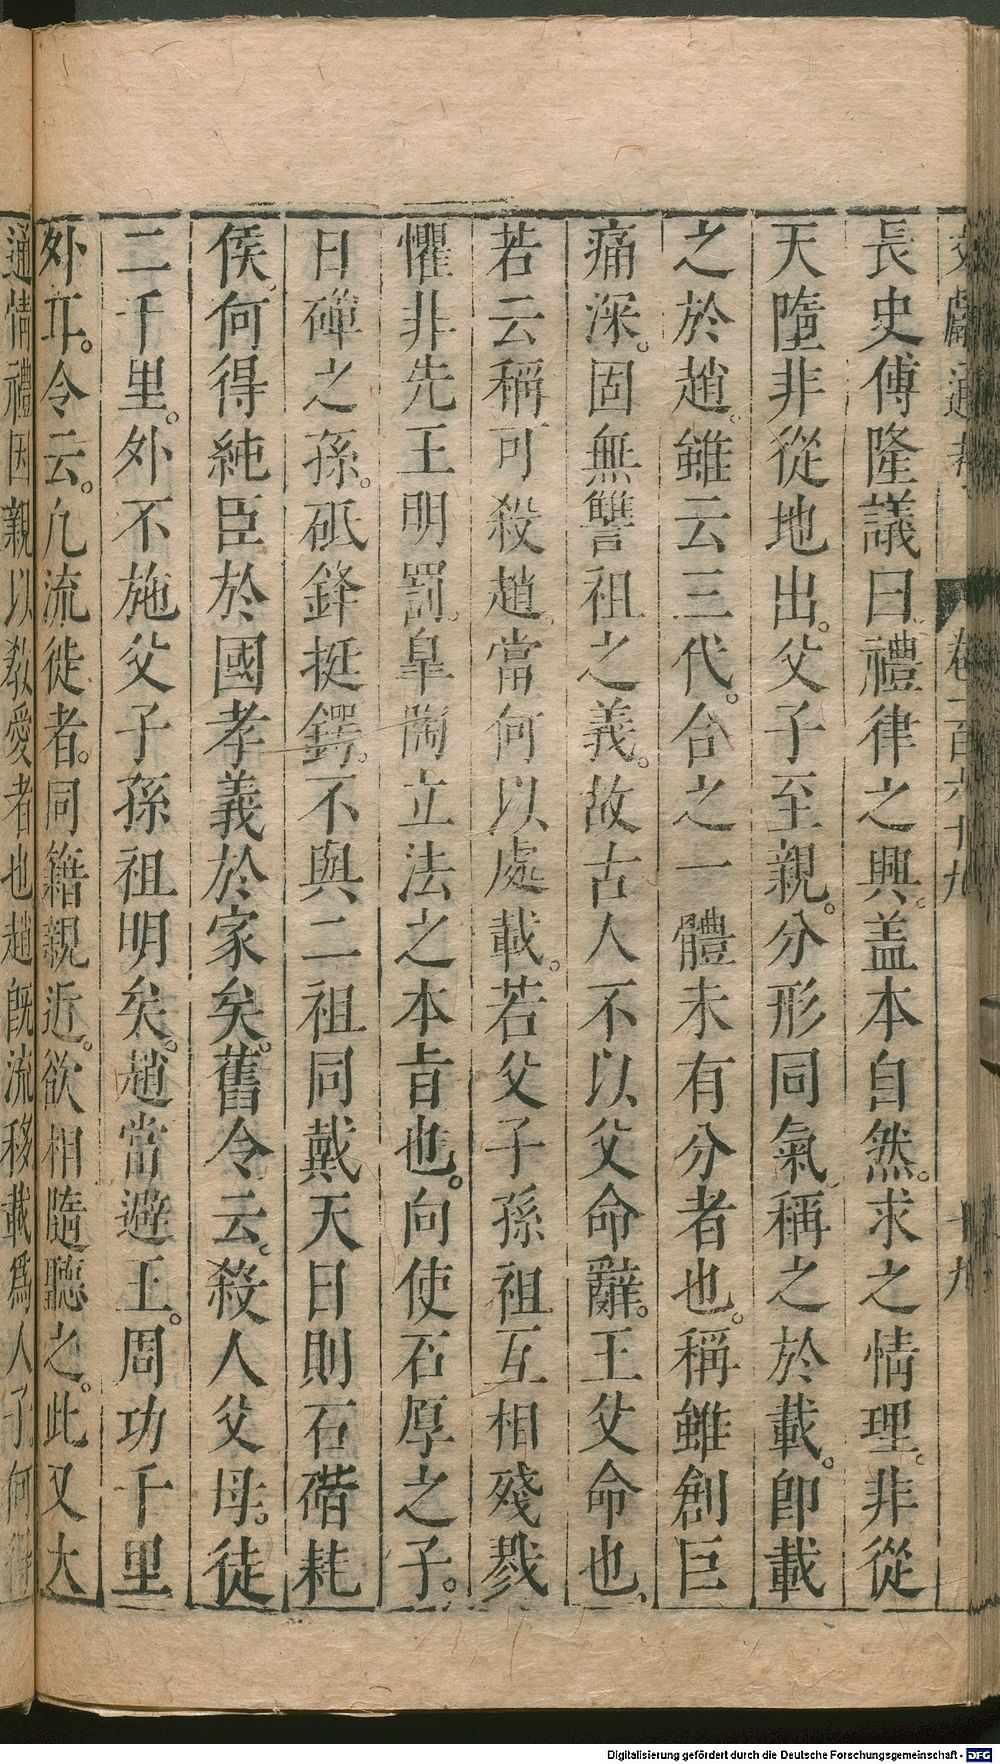 文獻通考 卷一百六十九 十九
長史傅隆議曰禮律之興。蓋本自然。求之情理。非從
天墮非從地出。父子至親。分形同氣稱之於載。卽載
之於趙。雖云三代。合之一體未有分者也。稱雖創巨
痛深。固無讐祖之義。故古人不以父命辭。王父命也、
若云稱可殺趙。當何以處載。若父子孫祖互相殘戮
懼非先王明罰。臯陶立法之本旨也。向使石厚之子。
日磾之孫。砥鋒挺鍔。不與二祖同戴天日則石碏秺
侯。何得純臣於國孝義於家矣。舊令云。殺人父母。徒
二千里。外不施父子孫祖明矣。趙當避王。周功千里
外耳。令云。凢流徙者。同籍親近。欲相隨聽之。此又大
通情禮因親以教愛者也趙旣流移載爲人子。何得
Digitalisierung gefördert durch die Deutsche Forschungsgemeinschaft - DFG